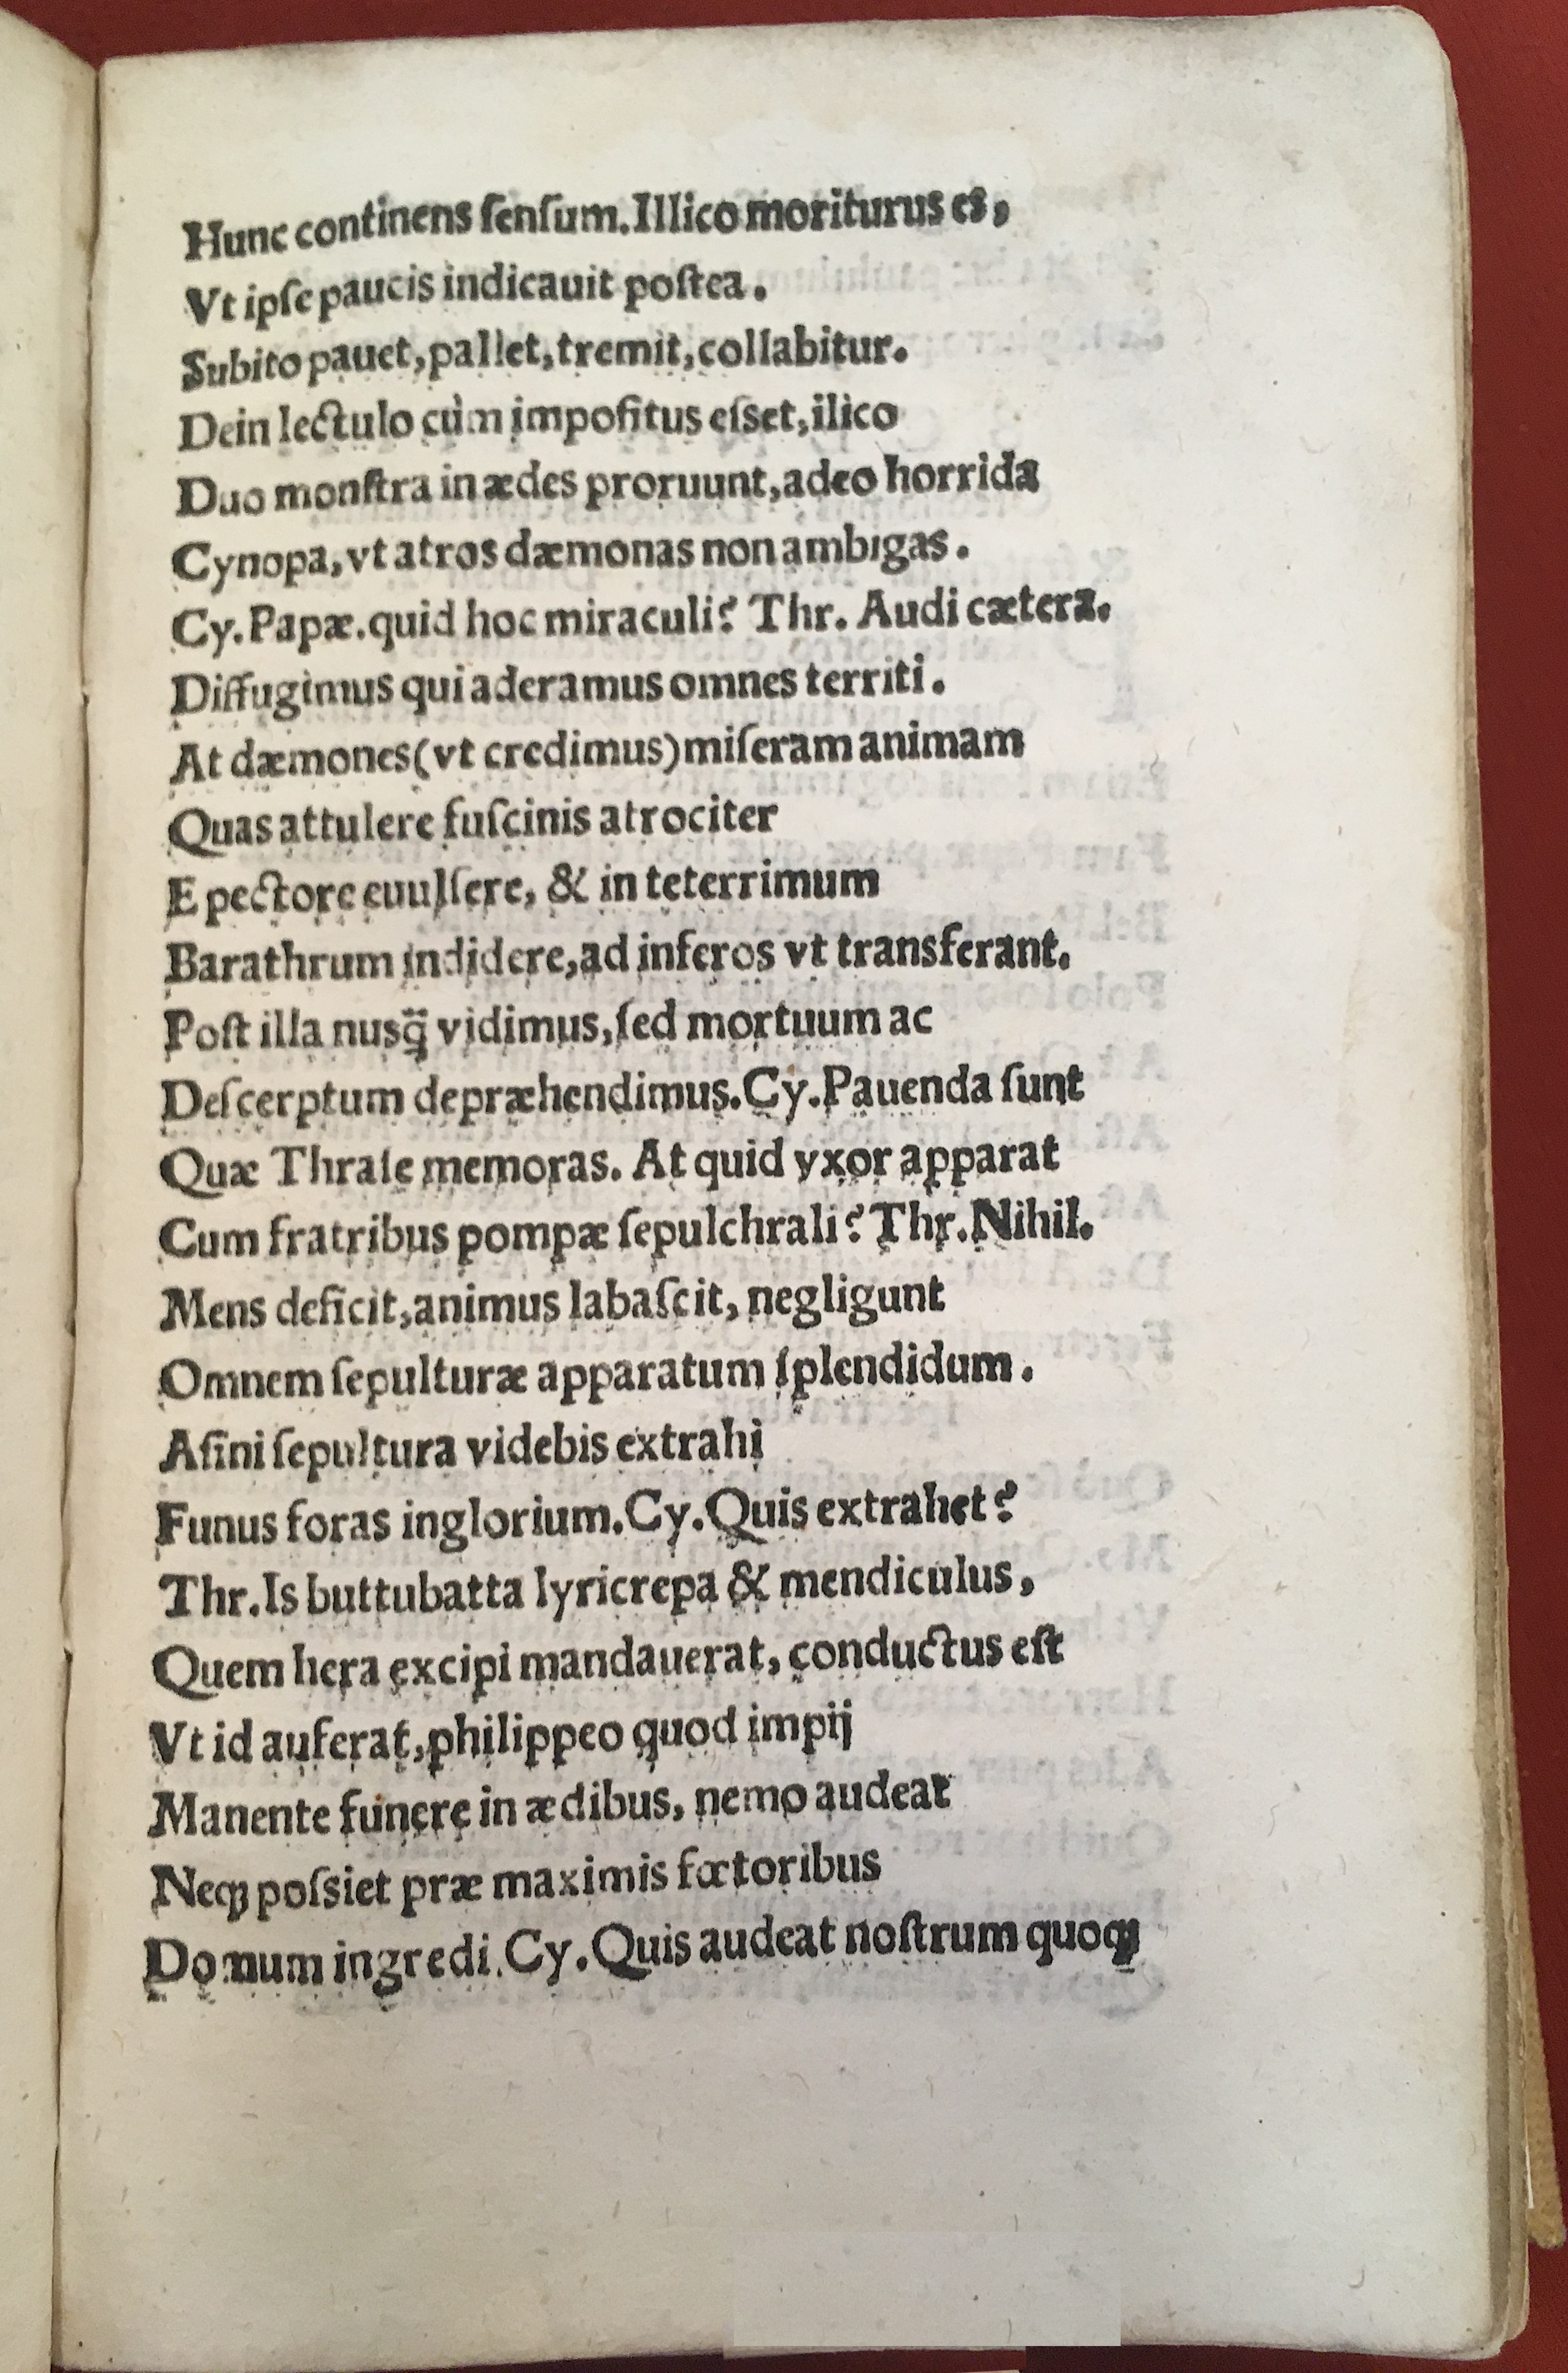 Hunc continens ſenſum. Illico moriturus es,
Vt ipſe paucis indicauit poſtea.
Subito pauet, pallet, tremit, collabitur.
Dein lectulo cùm impoſitus eſset, ilico
Duo monſtra in ædes proruunt, adeo horrida
Cynopa, vt atros dæmonas non ambigas.
Cy. Papæ. quid hoc miraculi? Thr. Audi cætera.
Diffugimus qui aderamus omnes territi.
At dæmones (vt credimus) miſeram animam
Quas attulere fuſcinis atrociter
E pectore euulſere, & in teterrimum
Barathrum indidere, ad inferos vt transferant.
Poſt illa nusq̃ vidimus, ſed mortuum ac
Deſcerptum depræhendimus. Cy. Pauenda ſunt
Quæ Thraſe memoras. At quid vxor apparat
Cum fratribus pompæ ſepulchrali? Thr. Nihil.
Mens deficit, animus labaſcit, negligunt
Omnem ſepulturæ apparatum ſplendidum.
Aſini ſepultura videbis extrahi
Funus foras inglorium. Cy. Quis extrahet?
Thr. Is buttubatta lyricrepa & mendiculus,
Quem hera excipi mandauerat, conductus eſt
Vt id auferat, philippeo quod impij
Manente funere in ædibus, nemo audeat
Neqꝫ poſsiet præ maximis fœtoribus
Domum ingredi. Cy. Quis audeat noſtrum quoqꝫ